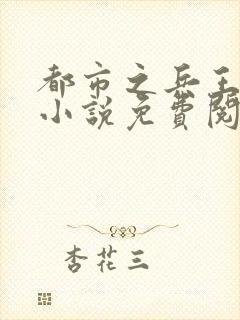 都市之兵王
小説免費閱
杏花三